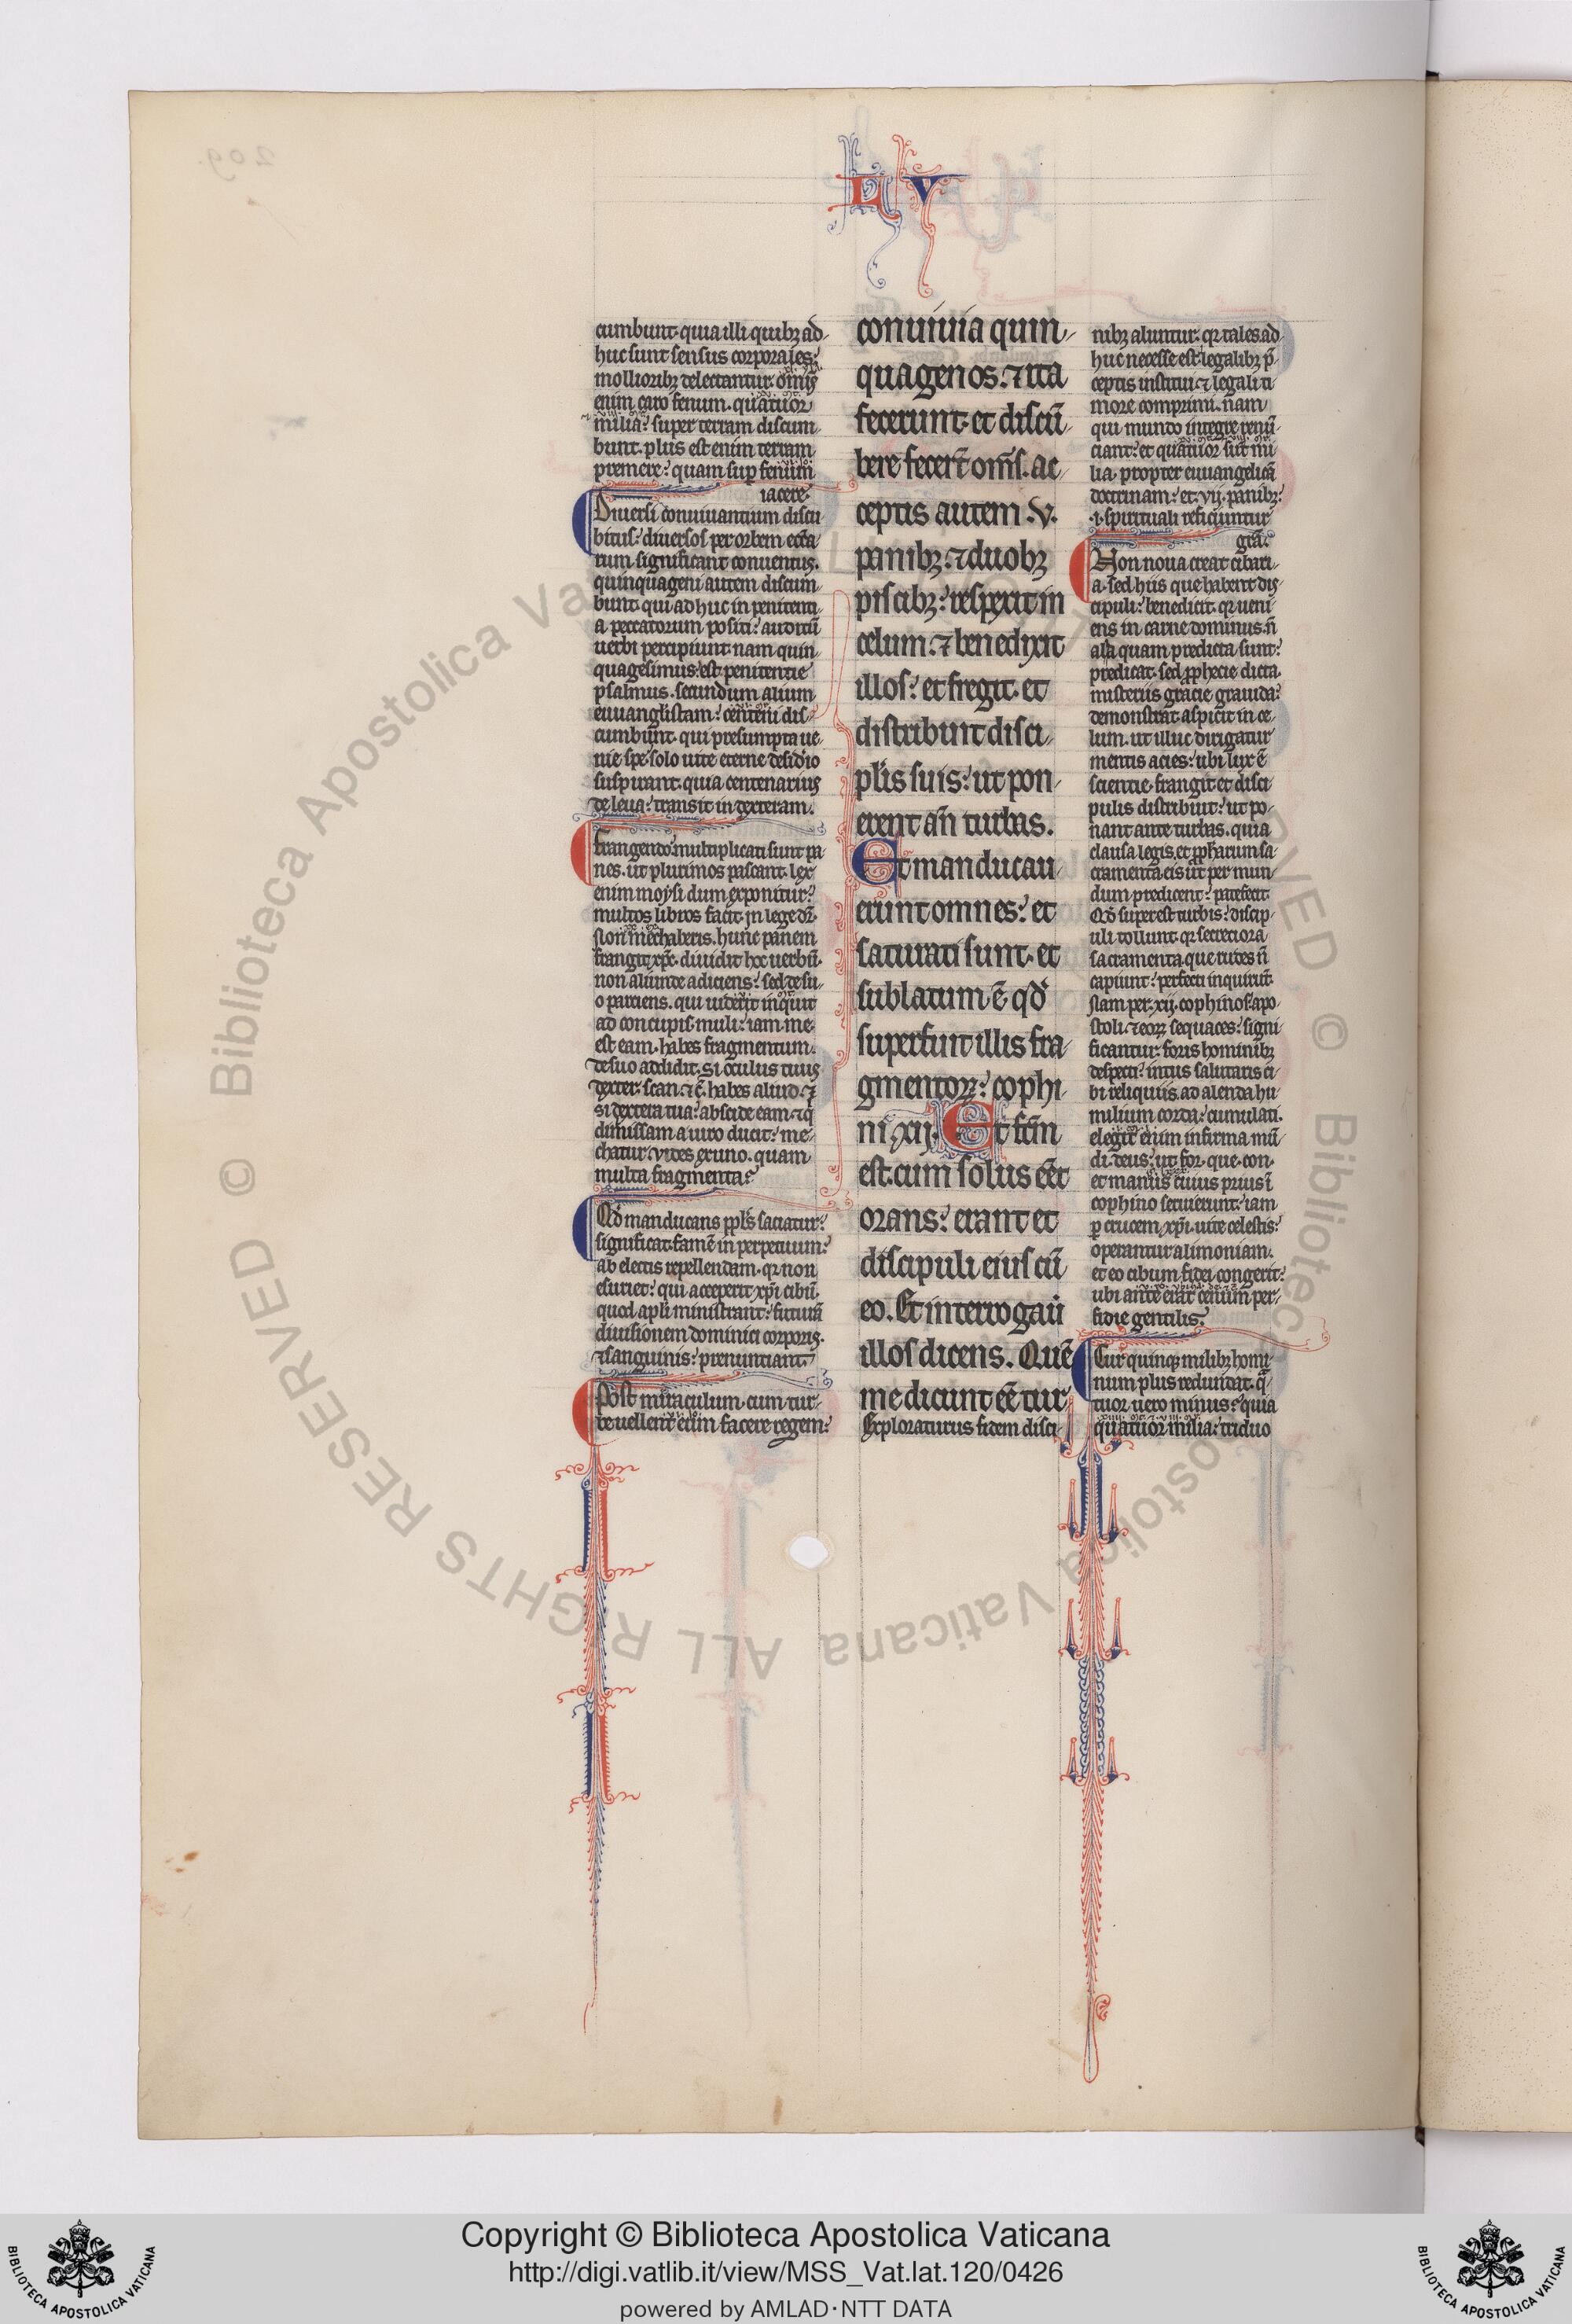 L V
cumbunt. quia illi quibꝫ ad
huc sunt sensus corporales:
mollioribꝫ delectantur. omīs
enim caro fenum. quatuor
milia: super terram discum
bunt. plus est enim terram
premere: quam sup fenum
iacere.
Diuersi conuiuantium discu
bitus: diuersos per orbem eccła
rum significant conuentus.
quinquageni autem discum
bunt. qui ad huc in penitenti
a peccatorum positi: auditū
uerbi percipiunt. nam quin
quagesimus: est penitentie
psalmus. secundum alium
euuanglistam: centeni dis
cumbunt. qui presumpta ue
nie spe. solo uite eterne desid'io
suspirant. quia centenarius
de leua: transit in dexteram.
Frangendo multiplicati sunt pa
nes. ut plurimos pascant. lex
enim moysi dum exponitur:
multos libros facit. in lege dr̄.
non mechaberis. hunc panem
frangit xp̄c. diuidit hoc uerbū.
non aliunde adiciens: sed de su
o parciens. qui uiderit inquit
ad concupis. muli: iam me.
est eam. habes fragmentum.
de suo addidit. si oculus tuus
dexter. scan. ⁊ c̄. habes aliud. ⁊
si dextera tua: abscide eam. ⁊ q̄
dimissam a uiro ducit: me
chatur. uides ex uno. quam
multa fragmenta.
Qd' manducans ppl's saciatur:
significat. famē in perpetuum:
ab electis repellendam. qr non
esuriet: qui acceperit xp̄i cibū.
quod apl'i ministrant: futurā
diuisionem dominici corporis.
⁊ sanguinis: prenuntiant.
Post miraculum. cum tur
be uellent eum facere regem:
conuiuia quin
quagenos. ⁊ ita
fecerunt. et discū
bere fecer̄t om̄s. ac
ceptis autem .v.
panibꝫ. ⁊ duobꝫ
piscibꝫ: respexit in
celum. ⁊ benedixit
illos: et fregit. et
distribuit disci
pl'is suis: ut pon
erent an̄ turbas.
Et manducau
erunt omnes: et
saturati sunt. et
sublatum ē qd'
superfuit illis fra
gmentoꝝ: cophi
ni xij. Et fc̄m
est. cum solus eēt
orans: erant et
discipuli eius cū
eo. Et interrogau̅
illos dicens. Quē
me dicunt eē tur
Exploraturus fidem disci
nibꝫ aluntur. qr tales ad
huc necesse est legalibꝫ p̄
ceptis institui. ⁊ legali ti
more comprimi. nam
qui mundo integre renū
ciant: et quatuor sūt mi
lia. propter euuangelicā
doctrinam: et .vij. panibꝫ:
.i. spirituali reficiuntur
gra̅.
Non noua creat cibari
a. sed hiis que habent dis
cipuli: benedicit. qr ueni
ens in carne dominus. n̄
alia quam predicta sunt:
predicat. sed prophecie dicta.
misteriis gracie grauida:
demonstrat. aspicit in ce
lum. ut illuc dirigatur
mentis acies: ubi lux ē
scientie. frangit et disci
pulis distribuit: ut po
nant ante turbas. quia
clausa legis. et prophetarum sa
cramenta. eis ut per mun
dum predicent: patefecit.
Qd' superest turbis: discip
uli tollunt. qr secretiora
sacramenta. que rudes n̄
capiunt: perfecti inquirūt.
Nam per .xij. cophinos. apo
stoli ⁊ eoꝝ sequaces: signi
ficantur. foris hominibꝫ
despecti: intus salutaris ci
bi reliquiis. ad alenda hu
milium corda: cumulati.
elegit enim infirma mū
di. deus: ut for. que. con.
et manus eiuus prius ī
cophino seruierunt: iam
ꝑ crucem xp̄i. uite celestis:
operantur alimoniam.
et eo cibum fidei congerit:
ubi ante erat cenum per
fidie gentilis.
Cur quinqꝫ milibꝫ homi
num plus redundat. q̄
tuor uero minus: quia
quatuor milia: triduo
Copyright © Biblioteca Apostolica Vaticana
http://digi.vatlib.it/view/MSS_Vat.lat.120/0426
powered by AMLAD·NTT DATA
BIBLIOTECA APOSTOLICA VATICANA
BIBLIOTECA APOSTOLICA VATICANA
© Biblioteca Apostolica Vaticana ALL RIGHTS RESERVED